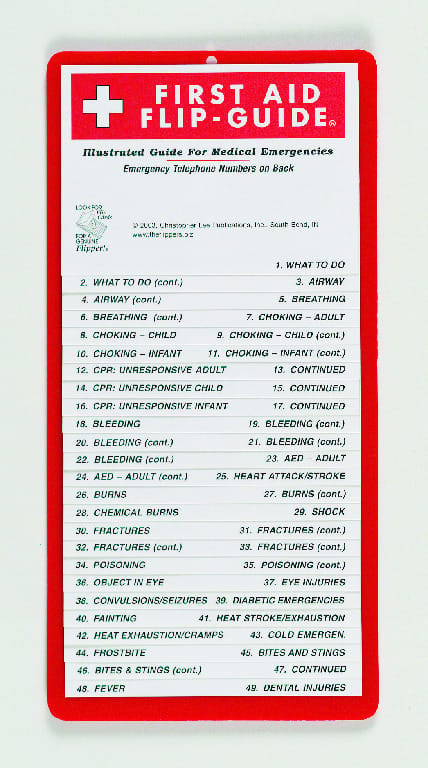 FIRST AID
FLIP-GUIDE®
Illustrated Guide For Medical Emergencies
Emergency Telephone Numbers on Back
LOOK FOR
FOR A
GENUINE
Flipper!
© 2003, Christopher Lee Publications, Inc., South Bend, IN
1. WHAT TO DO
2. WHAT TO DO (cont.) 3. AIRWAY
4. AIRWAY (cont.) 5. BREATHING
6. BREATHING (cont.) 7. CHOKING – ADULT
8. CHOKING – CHILD 9. CHOKING – CHILD (cont.)
10. CHOKING – INFANT 11. CHOKING – INFANT (cont.)
12. CPR: UNRESPONSIVE ADULT 13. CONTINUED
14. CPR: UNRESPONSIVE CHILD 15. CONTINUED
16. CPR: UNRESPONSIVE INFANT 17. CONTINUED
18. BLEEDING 19. BLEEDING (cont.)
20. BLEEDING (cont.) 21. BLEEDING (cont.)
22. BLEEDING (cont.) 23. AED – ADULT
24. AED – ADULT (cont.) 25. HEART ATTACK/STROKE
26. BURNS 27. BURNS (cont.)
28. CHEMICAL BURNS 29. SHOCK
30. FRACTURES 31. FRACTURES (cont.)
32. FRACTURES (cont.) 33. FRACTURES (cont.)
34. POISONING 35. POISONING (cont.)
36. OBJECT IN EYE 37. EYE INJURIES
38. CONVULSIONS/SEIZURES 39. DIABETIC EMERGENCIES
40. FAINTING 41. HEAT STROKE/EXHAUSTION
42. HEAT EXHAUSTION/CRAMPS 43. COLD EMERGEN.
44. FROSTBITE 45. BITES AND STINGS
46. BITES & STINGS (cont.) 47. CONTINUED
48. FEVER 49. DENTAL INJURIES